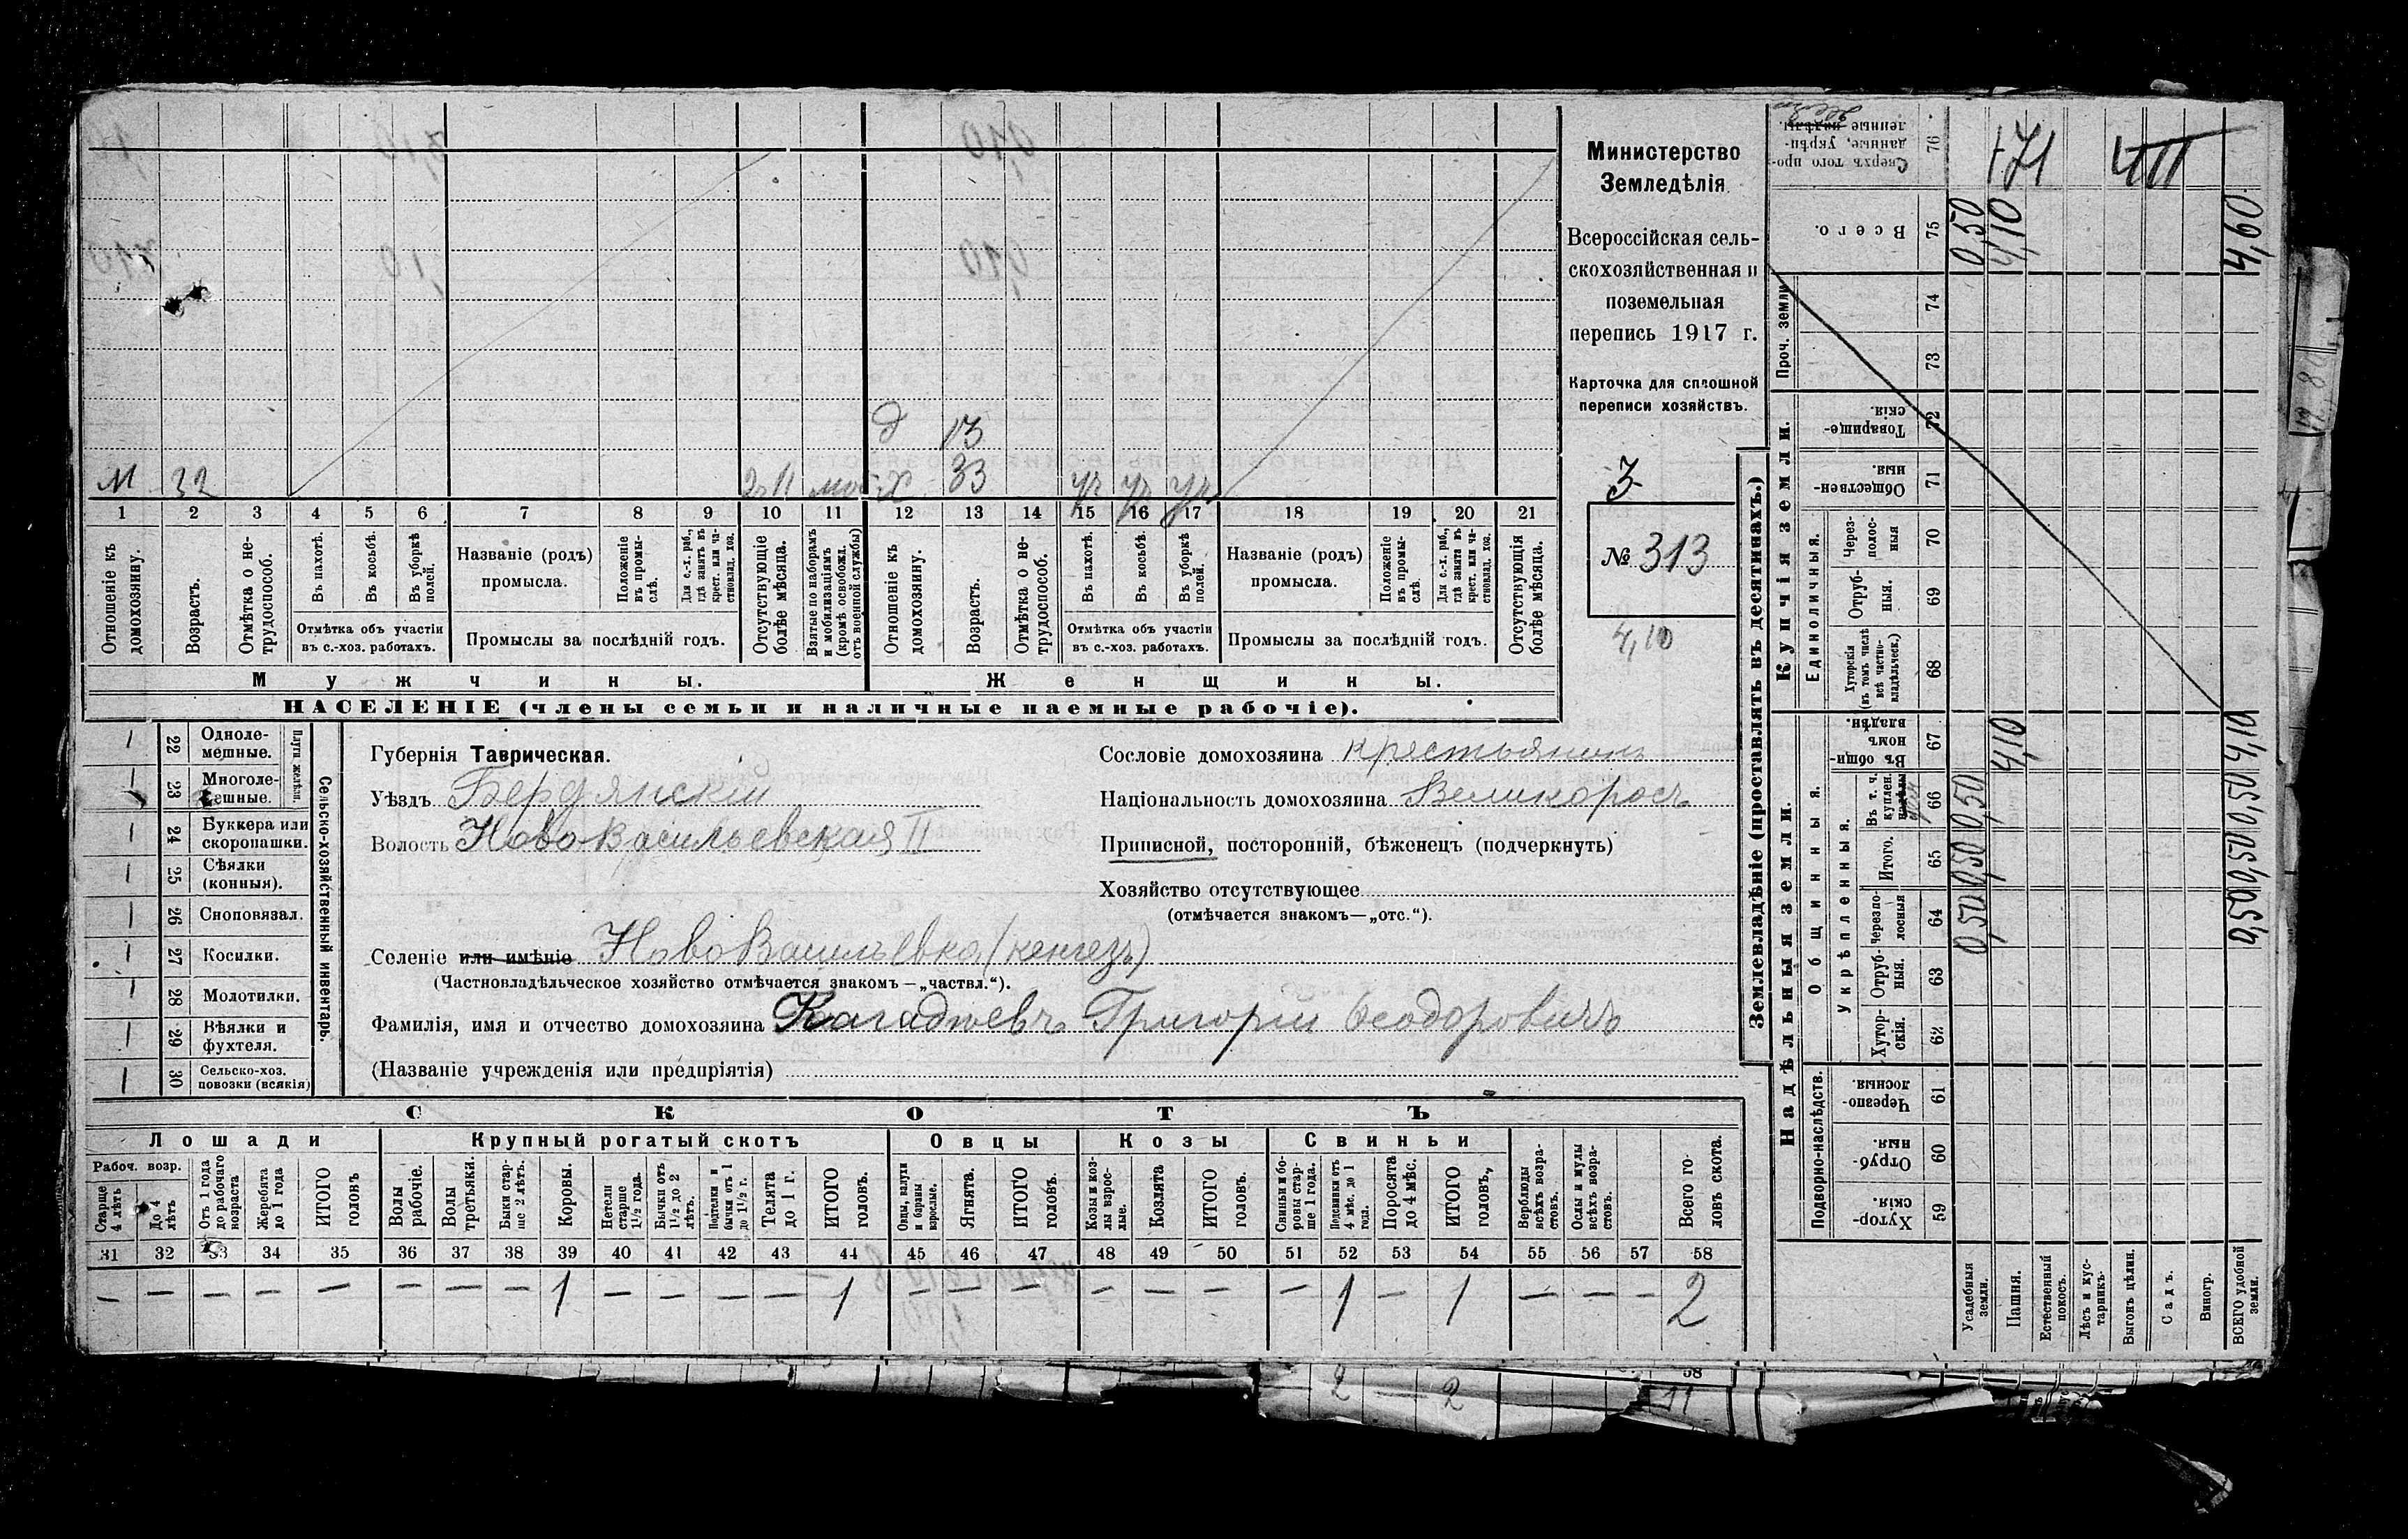 Министерство
Земледѣлія
Всероссійская сель-
скохозяйственная и
поземельная
перепись 1917 г.
Карточка для сплошной
переписи хозяйствъ.
3
№ 313
4,10
д 13
М 32 мо х 33 уч уч уч
1 2 3 4 5 6 7 8 9 10 11 12 13 14 15 16 17 18 19 20 21
Отношеніе къ домохозяину.
Возрастъ.
Отмѣтка о не-трудоспособ.
Въ пахотѣ.
Въ косьбѣ.
Въ уборкѣ полей.
Отмѣтка объ участіи въ с.-хоз. работахъ.
Названіе (родъ) промысла.
Положеніе въ промы-слѣ.
Для с.-х. раб., гдѣ занятъ въ крест. или ча-стновлад. хоз.
Промыслы за послѣдній годъ.
Отсутствующіе болѣе мѣсяца.
Взятые по наборамъ и мобилизаціямъ (кромѣ освобожд. отъ военной службы)
Отношеніе къ домохозяину.
Возрастъ.
Отмѣтка о не-трудоспособ.
Въ пахотѣ.
Въ косьбѣ.
Въ уборкѣ полей.
Отмѣтка объ участіи въ с.-хоз. работахъ.
Названіе (родъ) промысла.
Положеніе въ промы-слѣ.
Для с.-х. раб., гдѣ занята въ крест. или ча-стновлад. хоз.
Промыслы за послѣдній годъ.
Отсутствующія болѣе мѣсяца.
Мужчины. Женщины.
НАСЕЛЕНІЕ (члены семьи и наличные наемные рабочіе).
Сельско-хозяйственный инвентарь.
Плуги желѣзн.
22 Одноле-мешные.
23 Многоле-мешные.
24 Буккера или скоропашки.
25 Сѣялки (конныя).
26 Сноповязал.
27 Косилки.
28 Молотилки.
29 Вѣялки и фухтеля.
30 Сельско-хоз. повозки (всякія)
Губернія Таврическая.
Уѣздъ Бердянскій
Волость Ново Васильевская II
Селеніе или имѣніе Ново Васильевка (кенгезъ)
(Частновладѣльческое хозяйство отмѣчается знакомъ—„частвл.“).
Фамилія, имя и отчество домохозяина Карагаджевъ Григорій Феодоровичъ
(Названіе учрежденія или предпріятія)
Сословіе домохозяина крестьянинъ
Національность домохозяина Великоросъ
Приписной, посторонній, бѣженецъ (подчеркнуть)
Хозяйство отсутствующее
(отмѣчается знакомъ—„отс.“).
СКОТЪ
Лошади Крупный рогатый скотъ Овцы Козы Свиньи
Рабоч. возр.
Старше 4 лѣтъ
До 4 лѣтъ
Отъ 1 года до рабочаго возраста
Жеребята до 1 года
ИТОГО головъ
Волы рабочіе.
Волы третьяки.
Быки стар-ше 2 лѣтъ.
Коровы.
Нетели старше 1½ года.
Бычки отъ 1½ до 2 лѣтъ.
Подтелки и бычки отъ 1 до 1½ г.
Телята до 1 г.
ИТОГО головъ.
Овцы, валухи и бараны взрослые.
Ягнята.
ИТОГО головъ.
Козы и коз-лы взрос-лые.
Козлята
ИТОГО головъ.
Свиньи и бо-ровы стар-ше 1 года.
Подсвинки отъ 4 мѣс. до 1 года.
Поросята до 4 мѣс.
ИТОГО головъ.
Верблюды всѣхъ возра-стовъ.
Ослы и мулы всѣхъ возра-стовъ.
Всего го-ловъ скота.
31 32 33 34 35 36 37 38 39 40 41 42 43 44 45 46 47 48 49 50 51 52 53 54 55 56 57 58
— — — — — — — — 1 — — — — 1 — — — — — — — 1 — 1 — — — 2
Землевладѣніе (проставлять въ десятинахъ.)
Надѣльныя земли. Купчія земли. Проч. земли
Подворно-наслѣдств.
Общинныя.
Укрѣпленныя.
Единоличныя.
Хутор-скія. 59
Отруб-ныя. 60
Черезпо-лосныя. 61
Хутор-скія. 62
Отруб-ныя. 63
Черезпо-лосныя 64
Итого. 65
Въ т. ч. куплен. надѣлы 66
Въ общин-номъ владѣн. 67
Хуторскія (въ томъ числѣ всѣ частно-владѣльческ.) 68
Отруб-ныя. 69
Через-полос-ныя 70
Обществен-ныя. 71
Товарище-скія. 72
73
74
Всего. 75
Сверхъ того про-данные, укрѣп-ленные надѣлы. 76
Усадебныя земли. 0,50 0,50 0,50 0,50
Пашня. 4,10 4,10 171
Естественный покосъ.
Лѣсъ и кус-тарникъ.
Выгонъ цѣлин.
Садъ.
Виногр.
ВСЕГО удобной земли. 0,50 0,50 0,50 4,10 4,60
58
2 2 11